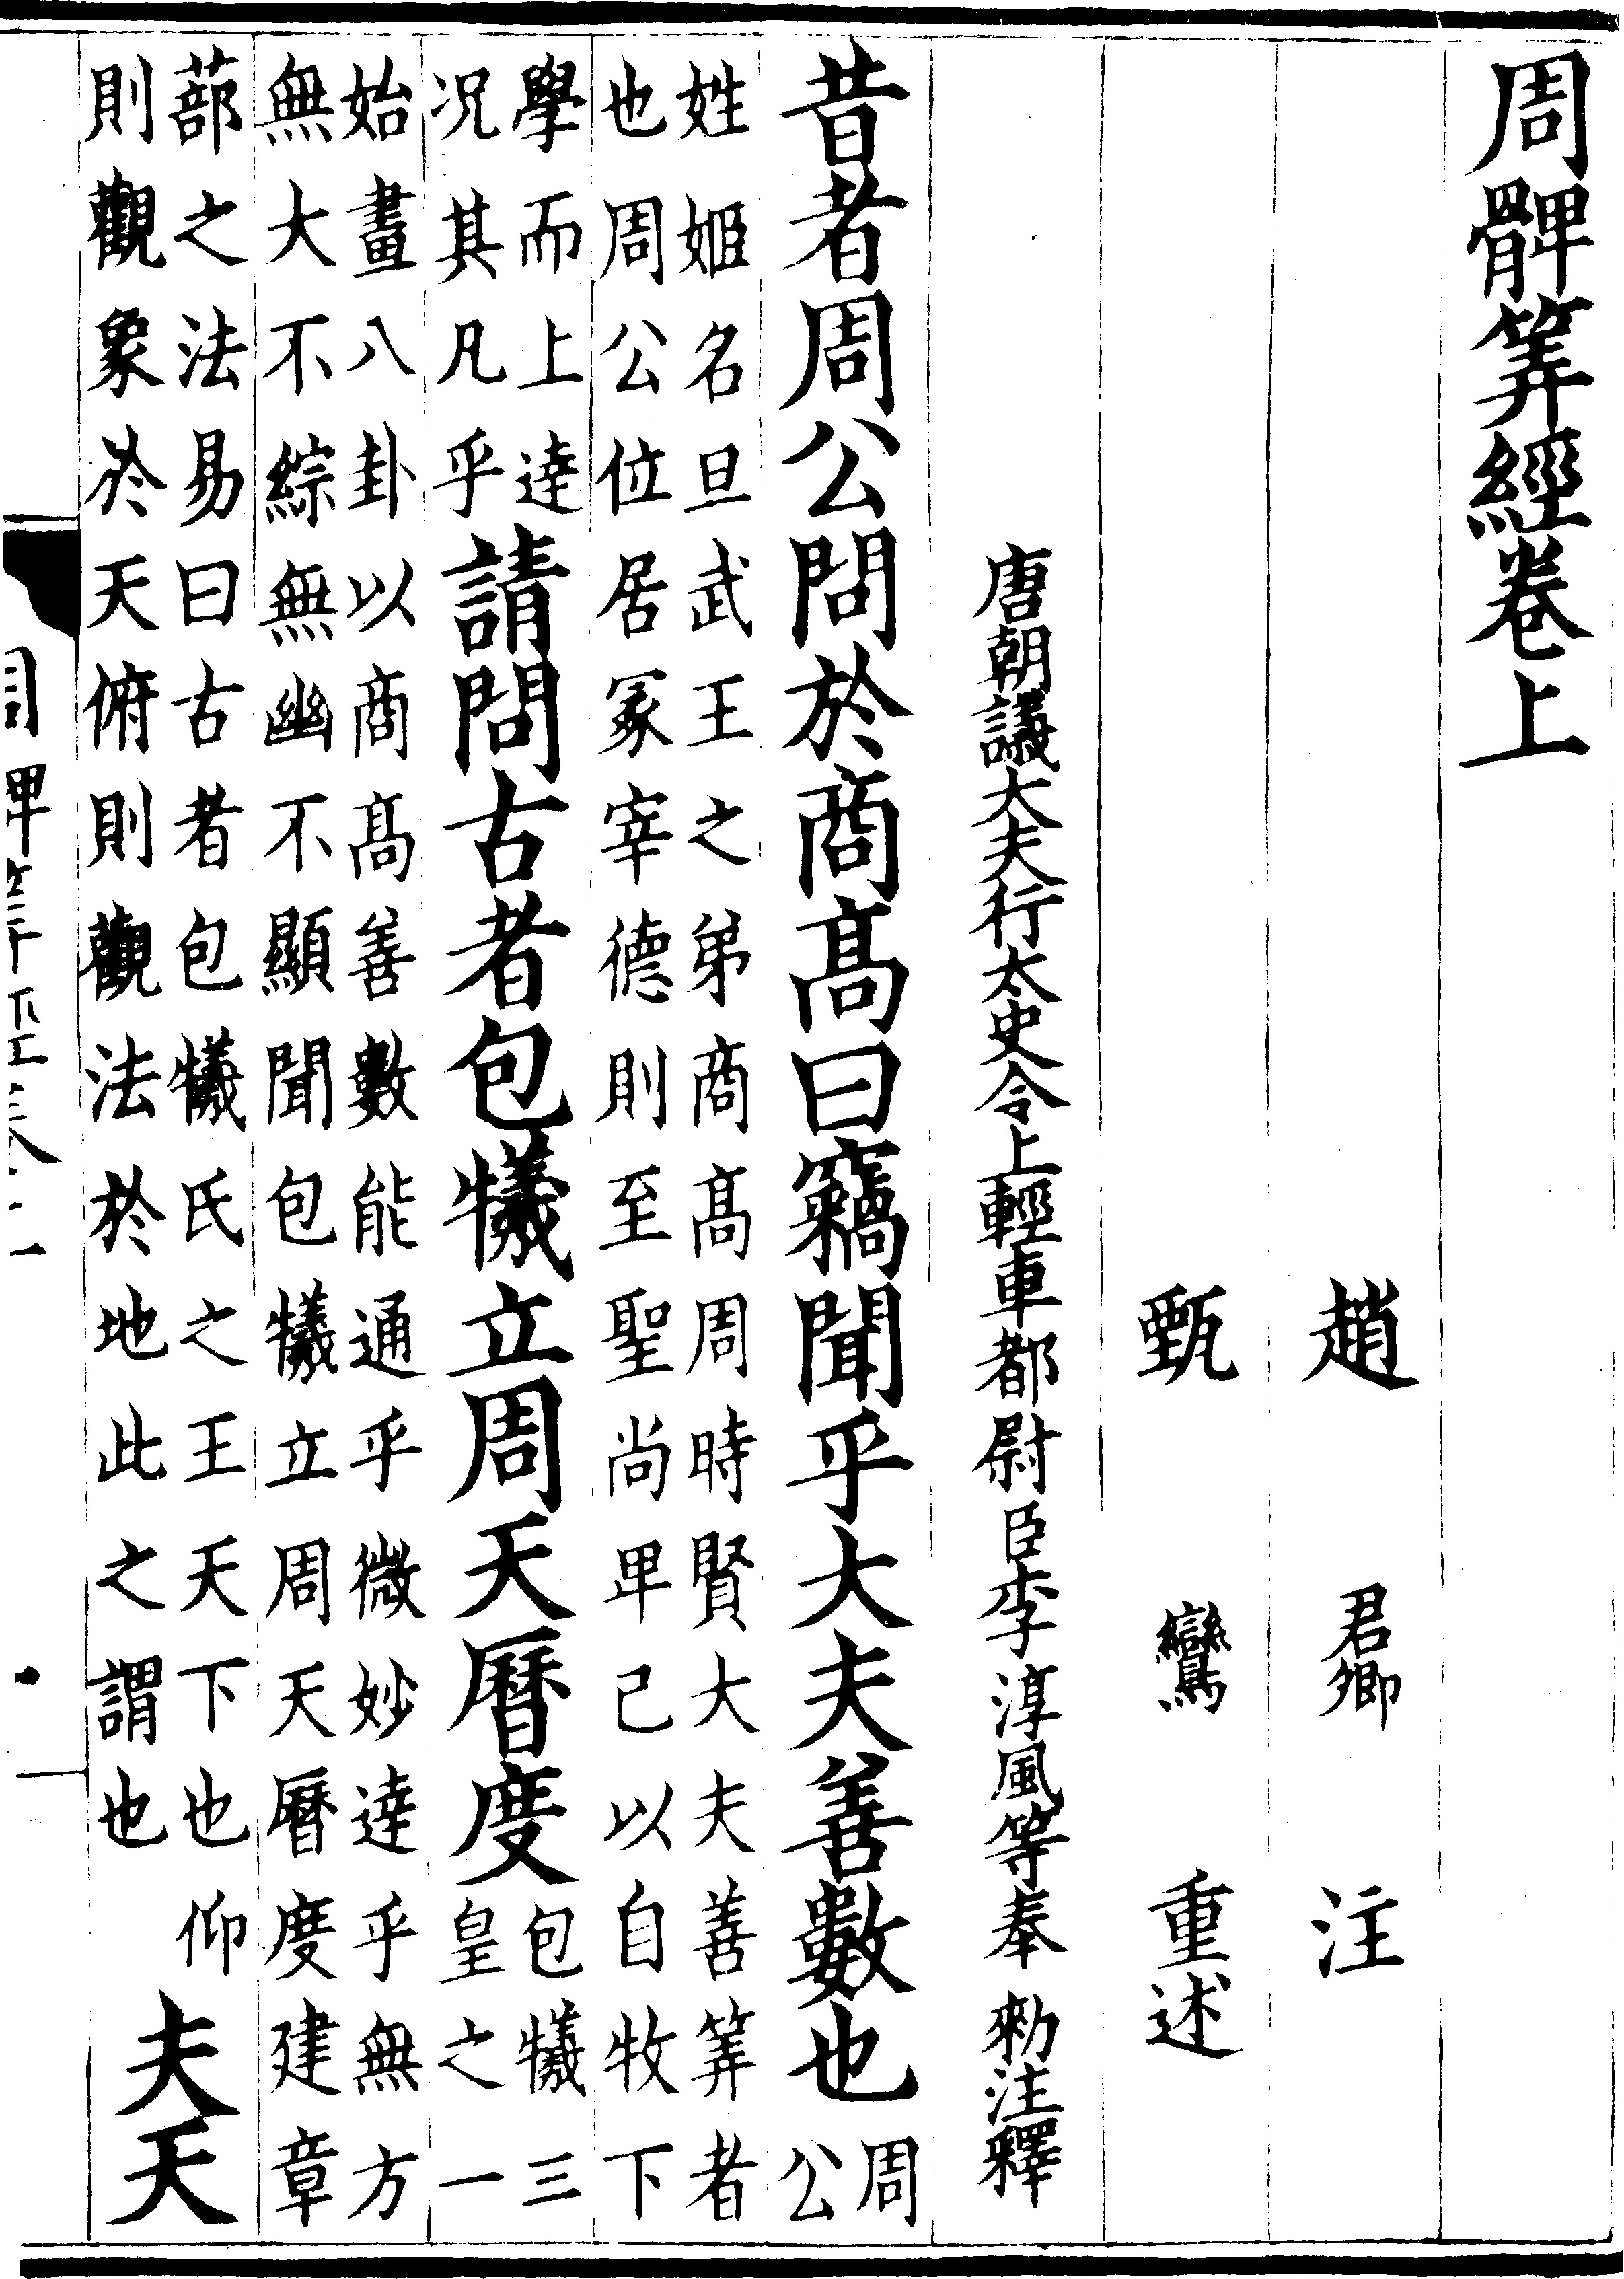 周髀筭經卷上
趙君卿注
甄鸞重述
唐朝議大夫行太史令上輕車都尉臣李淳風等奉勑注釋
昔者周公問於商髙曰竊聞乎大夫善數也周公
姓姬名旦武王之弟商髙周時賢大夫善筭者
也周公位居冢宰德則至聖尚卑己以自牧下
學而上達况其凡乎請問古者包犧立周天曆度包犧三皇之一
始畫八卦以商髙善數能通乎微妙達乎無方
無大不綜無幽不顯聞包犧立周天曆度建章
蔀之法易曰古者包犧氏之王天下也仰
則觀象於天俯則觀法於地此之謂也夫天